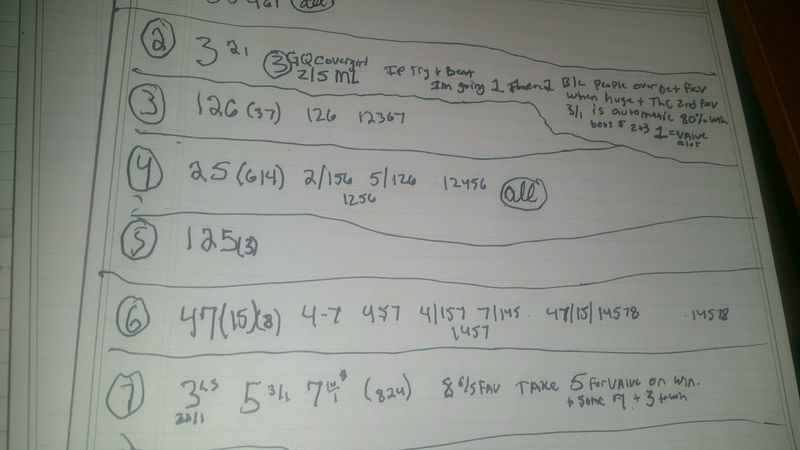 all
2 3 2,1 3 GQ Covergirl
2/5 ML
If Try + Beat
Im going 1 then 1
B/c People over bet Fav
when huge + The 2nd Fav
3/1 is automatic 80% win
both 5 2+3 1 = VALUE
alot
3 126 (37) 126 12367
4 25 (614) 2/156 5/126 12456 all
1256
5 125 (3)
6 47 (15) (8) 4-7 457 4/157 7/145 47/15/14578 14578
1457
7 3 5 3/1 7 (824) 8 6/5 FAV TAKE 5 For VALUE on WIN.
20/1 + Some 7 + 3 to win